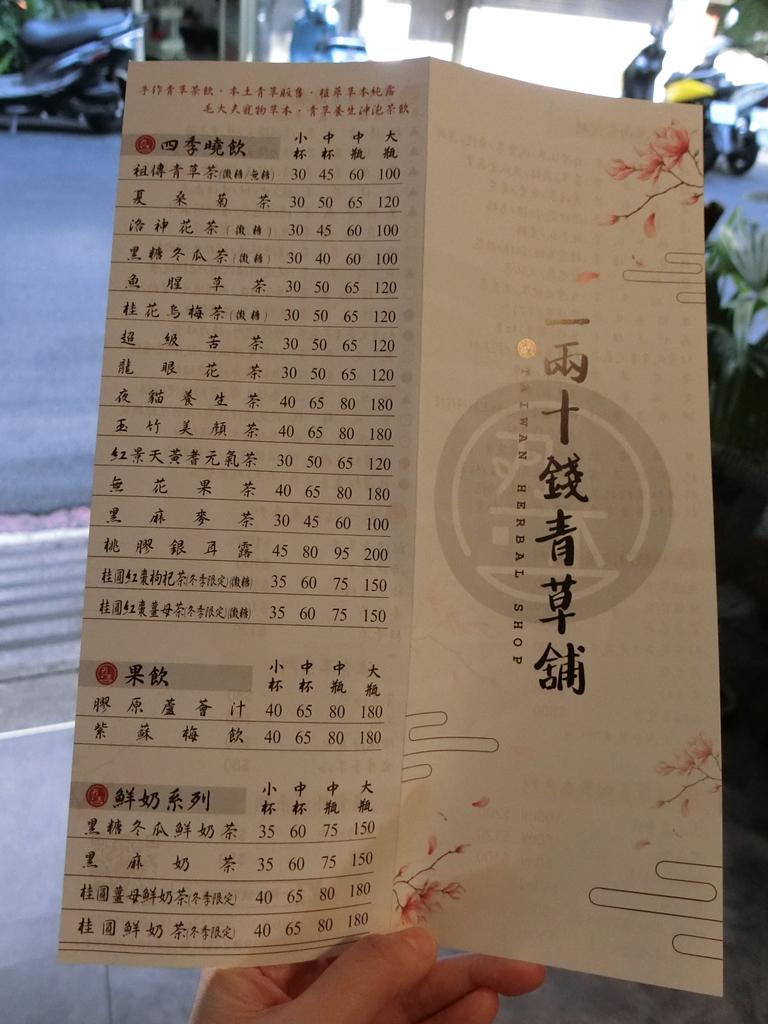 手作青草茶飲・本土青草販售・植萃草本純露
毛大夫寵物草本・青草養生沖泡茶飲
四季曉飲 小杯 中杯 中瓶 大瓶
祖傳青草茶(微糖/無糖) 30 45 60 100
夏桑菊茶 30 50 65 120
洛神花茶(微糖) 30 45 60 100
黑糖冬瓜茶(微糖) 30 40 60 100
魚腥草茶 30 50 65 120
桂花烏梅茶(微糖) 30 50 65 120
超級苦茶 30 50 65 120
龍眼花茶 30 50 65 120
夜貓養生茶 40 65 80 180
玉竹美顏茶 40 65 80 180
紅景天黃耆元氣茶 30 50 65 120
無花果茶 40 65 80 180
黑麻麥茶 30 45 60 100
桃膠銀耳露 45 80 95 200
桂圓紅棗枸杞茶(冬季限定)(微糖) 35 60 75 150
桂圓紅棗薑母茶(冬季限定)(微糖) 35 60 75 150
果飲 小杯 中杯 中瓶 大瓶
膠原蘆薈汁 40 65 80 180
紫蘇梅飲 40 65 80 180
鮮奶系列 小杯 中杯 中瓶 大瓶
黑糖冬瓜鮮奶茶 35 60 75 150
黑麻奶茶 35 60 75 150
桂圓薑母鮮奶茶(冬季限定) 40 65 80 180
桂圓鮮奶茶(冬季限定) 40 65 80 180
一兩十錢青草舖
TAIWAN HERBAL SHOP